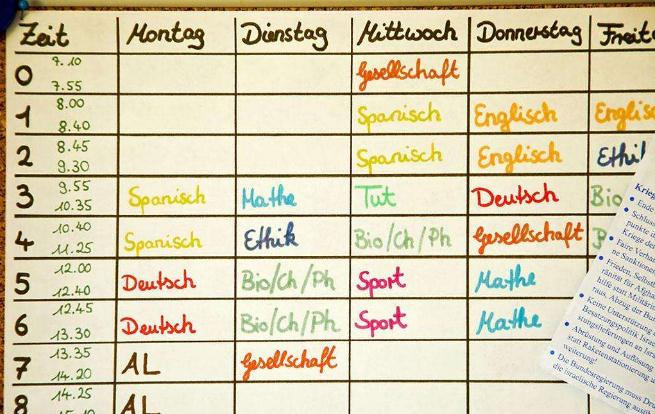 Zeit Montag Dienstag Mittwoch Donnerstag
0 7.10 Gesellschaft
7.55
1 8.00 Spanisch Englisch
8.40
2 8.45 Spanisch Englisch
9.30
3 9.55 Spanisch Mathe Tut Deutsch Bio
10.35
4 10.40 Spanisch Ethik Bio/Ch/Ph Gesellschaft
11.25
5 12.00 Deutsch Bio/Ch/Ph Sport Mathe
12.40
6 12.45 Deutsch Bio/Ch/Ph Sport Mathe
13.30
7 13.35 AL Gesellschaft
14.20
8 14.25 AL
• Ende
• Faire
• Frieden
• Keine Unterstützung
Besatzungspolitik
• Abrüstung und Auflösung
statt Raketenstationierung
• Die Bundesregierung muss
die israelische Regierung